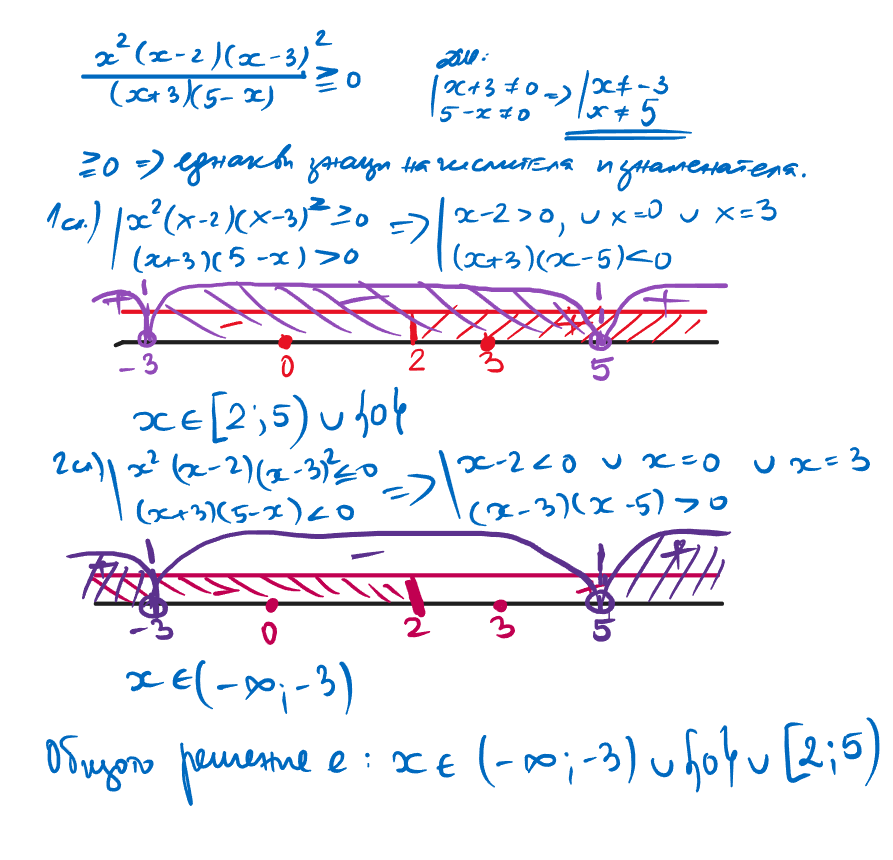 x²(x-2)(x-3)² / (x+3)(5-x) ≥ 0
ДМ:
| x+3 ≠ 0 => | x ≠ -3
| 5-x ≠ 0 | x ≠ 5
≥0 => еднакви знаци на числителя и знаменателя.
1сл.) | x²(x-2)(x-3)² ≥ 0 => | x-2>0, ∪ x=0 ∪ x=3
| (x+3)(5-x) > 0 | (x+3)(x-5)<0
+ - - + +
-3 0 2 3 5
x ∈ [2;5) ∪ {0}
2сл.) | x²(x-2)(x-3)² ≤ 0 => | x-2<0 ∪ x=0 ∪ x=3
| (x+3)(5-x) < 0 | (x-3)(x-5) > 0
+ - - + +
-3 0 2 3 5
x ∈ (-∞;-3)
Общото решение е: x ∈ (-∞;-3) ∪ {0} ∪ [2;5)